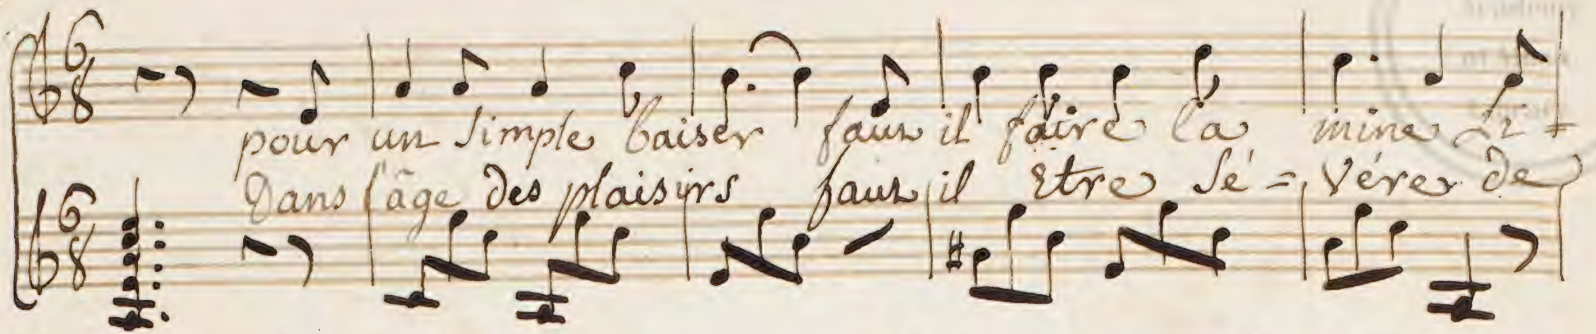 pour un simple baiser faut il faire la mine Li =
Dans l'âge des plaisirs faut il Etre sé = vérer de